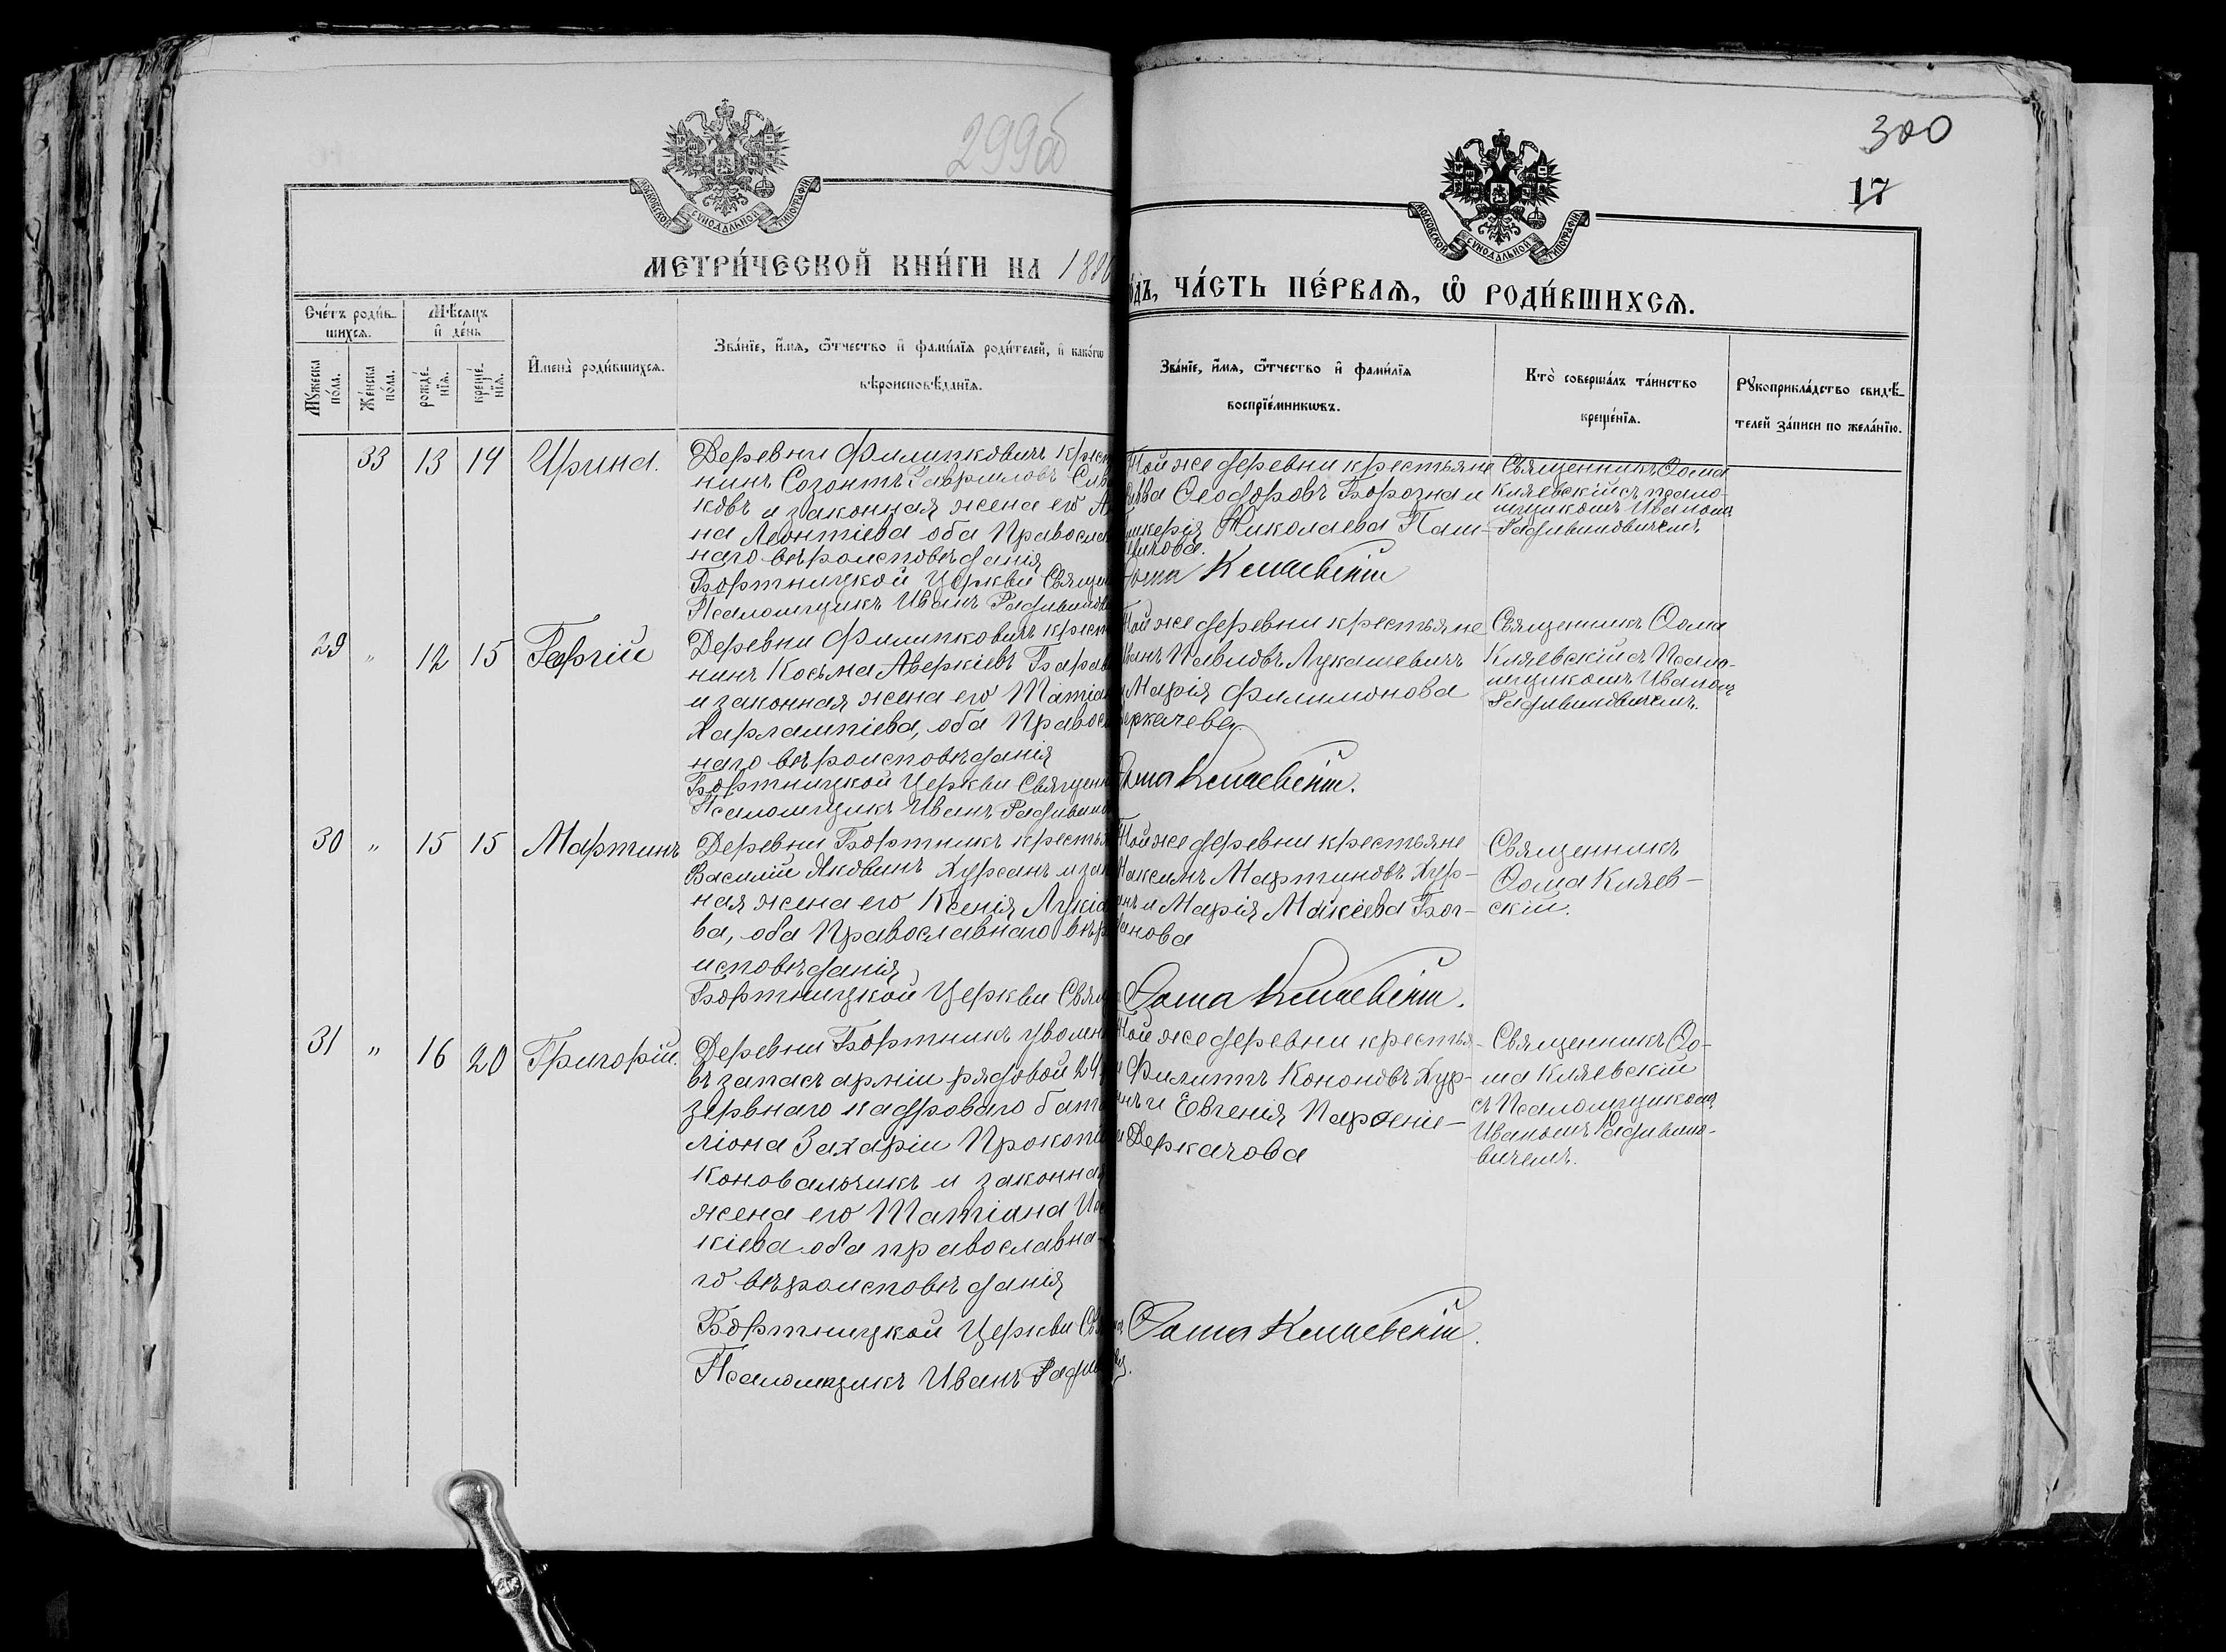 299б
300
17
МОСКОВСКОЙ СѴНОДАЛЬНОЙ ТИПОГРАФІИ
МОСКОВСКОЙ СѴНОДАЛЬНОЙ ТИПОГРАФІИ
МЕТРИ́ЧЕСКОЙ КНИ́ГИ НА 188
ГО́ДЪ, ЧА́СТЬ ПЕ́РВАЯ, Ѿ РОДИ́ВШИХСЯ.
Сче́тъ роди́в-
шихся.
Мѣ́сяцъ
и҆ де́нь
Мꙋ́жеска
по́ла.
Же́нска
по́ла.
рожде́-
нїя.
креще́-
нїя.
И҆мена̀ роди́вшихся.
Зва́нїе, и҆́мя, ѻ҆́тчество и҆ фами́лїя роди́телей, и҆ како́гѡ
вѣроисповѣ́данїя.
Зва́нїе, и҆́мя, ѻ҆́тчество и҆ фами́лїя
воспрїе́мникѡвъ.
Кто̀ соверша́лъ та́инство
креще́нїя.
Рꙋкоприкла́дство свидѣ́-
телей за́писи по жела́нїю.
33 13 14 Ирина.
Деревни Филипковичъ крест
нинъ Созонтъ Гавриловъ Сав
ковъ и законная жена его
на Леонтіева оба Православ
наго вѣроисповѣданія
Бортницкой Церкви Свящ
Псаломщикъ Иванъ Радивинов
Той же деревни крестьяне
Савва Ѳеодоровъ Борозна и
Гликерія Николаева Паш-
кова.
Ѳома Кнлевскій
Священникъ Ѳома
Киявскій съ псало-
мщикомъ Иваномъ
Радивиновичемъ
29 " 12 15 Георгій
Деревни Филипковичъ крест
нинъ Косьма Аверкіевъ Бара
и законная жена его Татіа
Харлампіева, оба Правос
наго вѣроисповѣданія
Бортницкой Церкви Священ
Псаломщикъ Иванъ Радивин
Той же деревни крестьяне
Иванъ Павловъ Лукашевичъ
и Марія Филимонова
Деркачева
Ѳома Кляевскій.
Священникъ Ѳома
Кляевскій съ Псало-
мщикомъ Иваномъ
Радивиновичемъ.
30 " 15 15 Мартинъ
Деревни Бортникъ кресть
Василій Яковинъ Хурсанъ и зак
ная жена его Ксенія Лукіа
ва, оба Православнаго вѣр
исповѣданія
Бортницкой Церкви Свящ
Той же деревни крестьяне
Максимъ Мартиновъ Хур-
анъ и Марія Макѣева Бог-
данова
Ѳома Кляевскій.
Священникъ
Ѳома Кляев-
скій.
31 " 16 20 Григорій.
Деревни Бортникъ уволен
въ запасъ арміи рядовой 24
зервнаго кадроваго бата
ліона Захарій Прокопі
Коновальчикъ и законная
жена его Татіана
кіева оба православна-
го вѣроисповѣданія
Бортницкой Церкви Свя
Псаломщикъ Иванъ Радив
Той же деревни крестья-
Филиппъ Кононовъ Хур-
анъ и Евгенія Парѳеніе-
Деркачова
Ѳома Кляевскій.
Священникъ Ѳо-
ма Кляевскій
съ Псаломщикомъ
Иваномъ Радивино-
вичемъ.